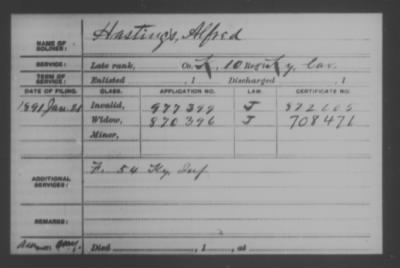 Hastings, Alfred
NAME OF SOLDIER:
SERVICE: Late rank, Co. K, 10 Reg't Ky. Cav.
TERM OF SERVICE: Enlisted , 1 Discharged , 1
DATE OF FILING. CLASS. APPLICATION NO. LAW. CERTIFICATE NO.
1891 Jan. Invalid, 977399 J
Widow, 870396 J 708471
Minor,
ADDITIONAL SERVICES: F. 54 Ky. Inf.
REMARKS:
Died , 1 , at